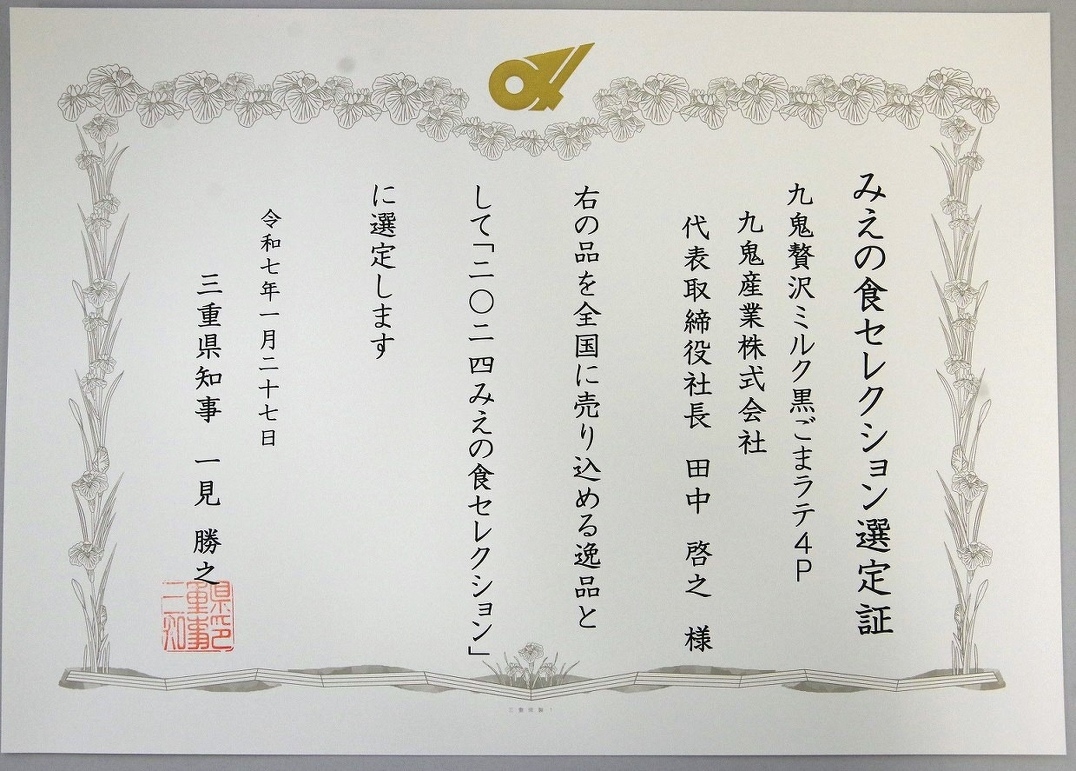 みえの食セレクション選定証
九鬼贅沢ミルク黒ごまラテ4P
九鬼産業株式会社
代表取締役社長 田中 啓之 様
右の品を全国に売り込める逸品と
して「二〇二四みえの食セレクション」
に選定します
令和七年一月二十七日
三重県知事 一見 勝之
県印
重事
三知